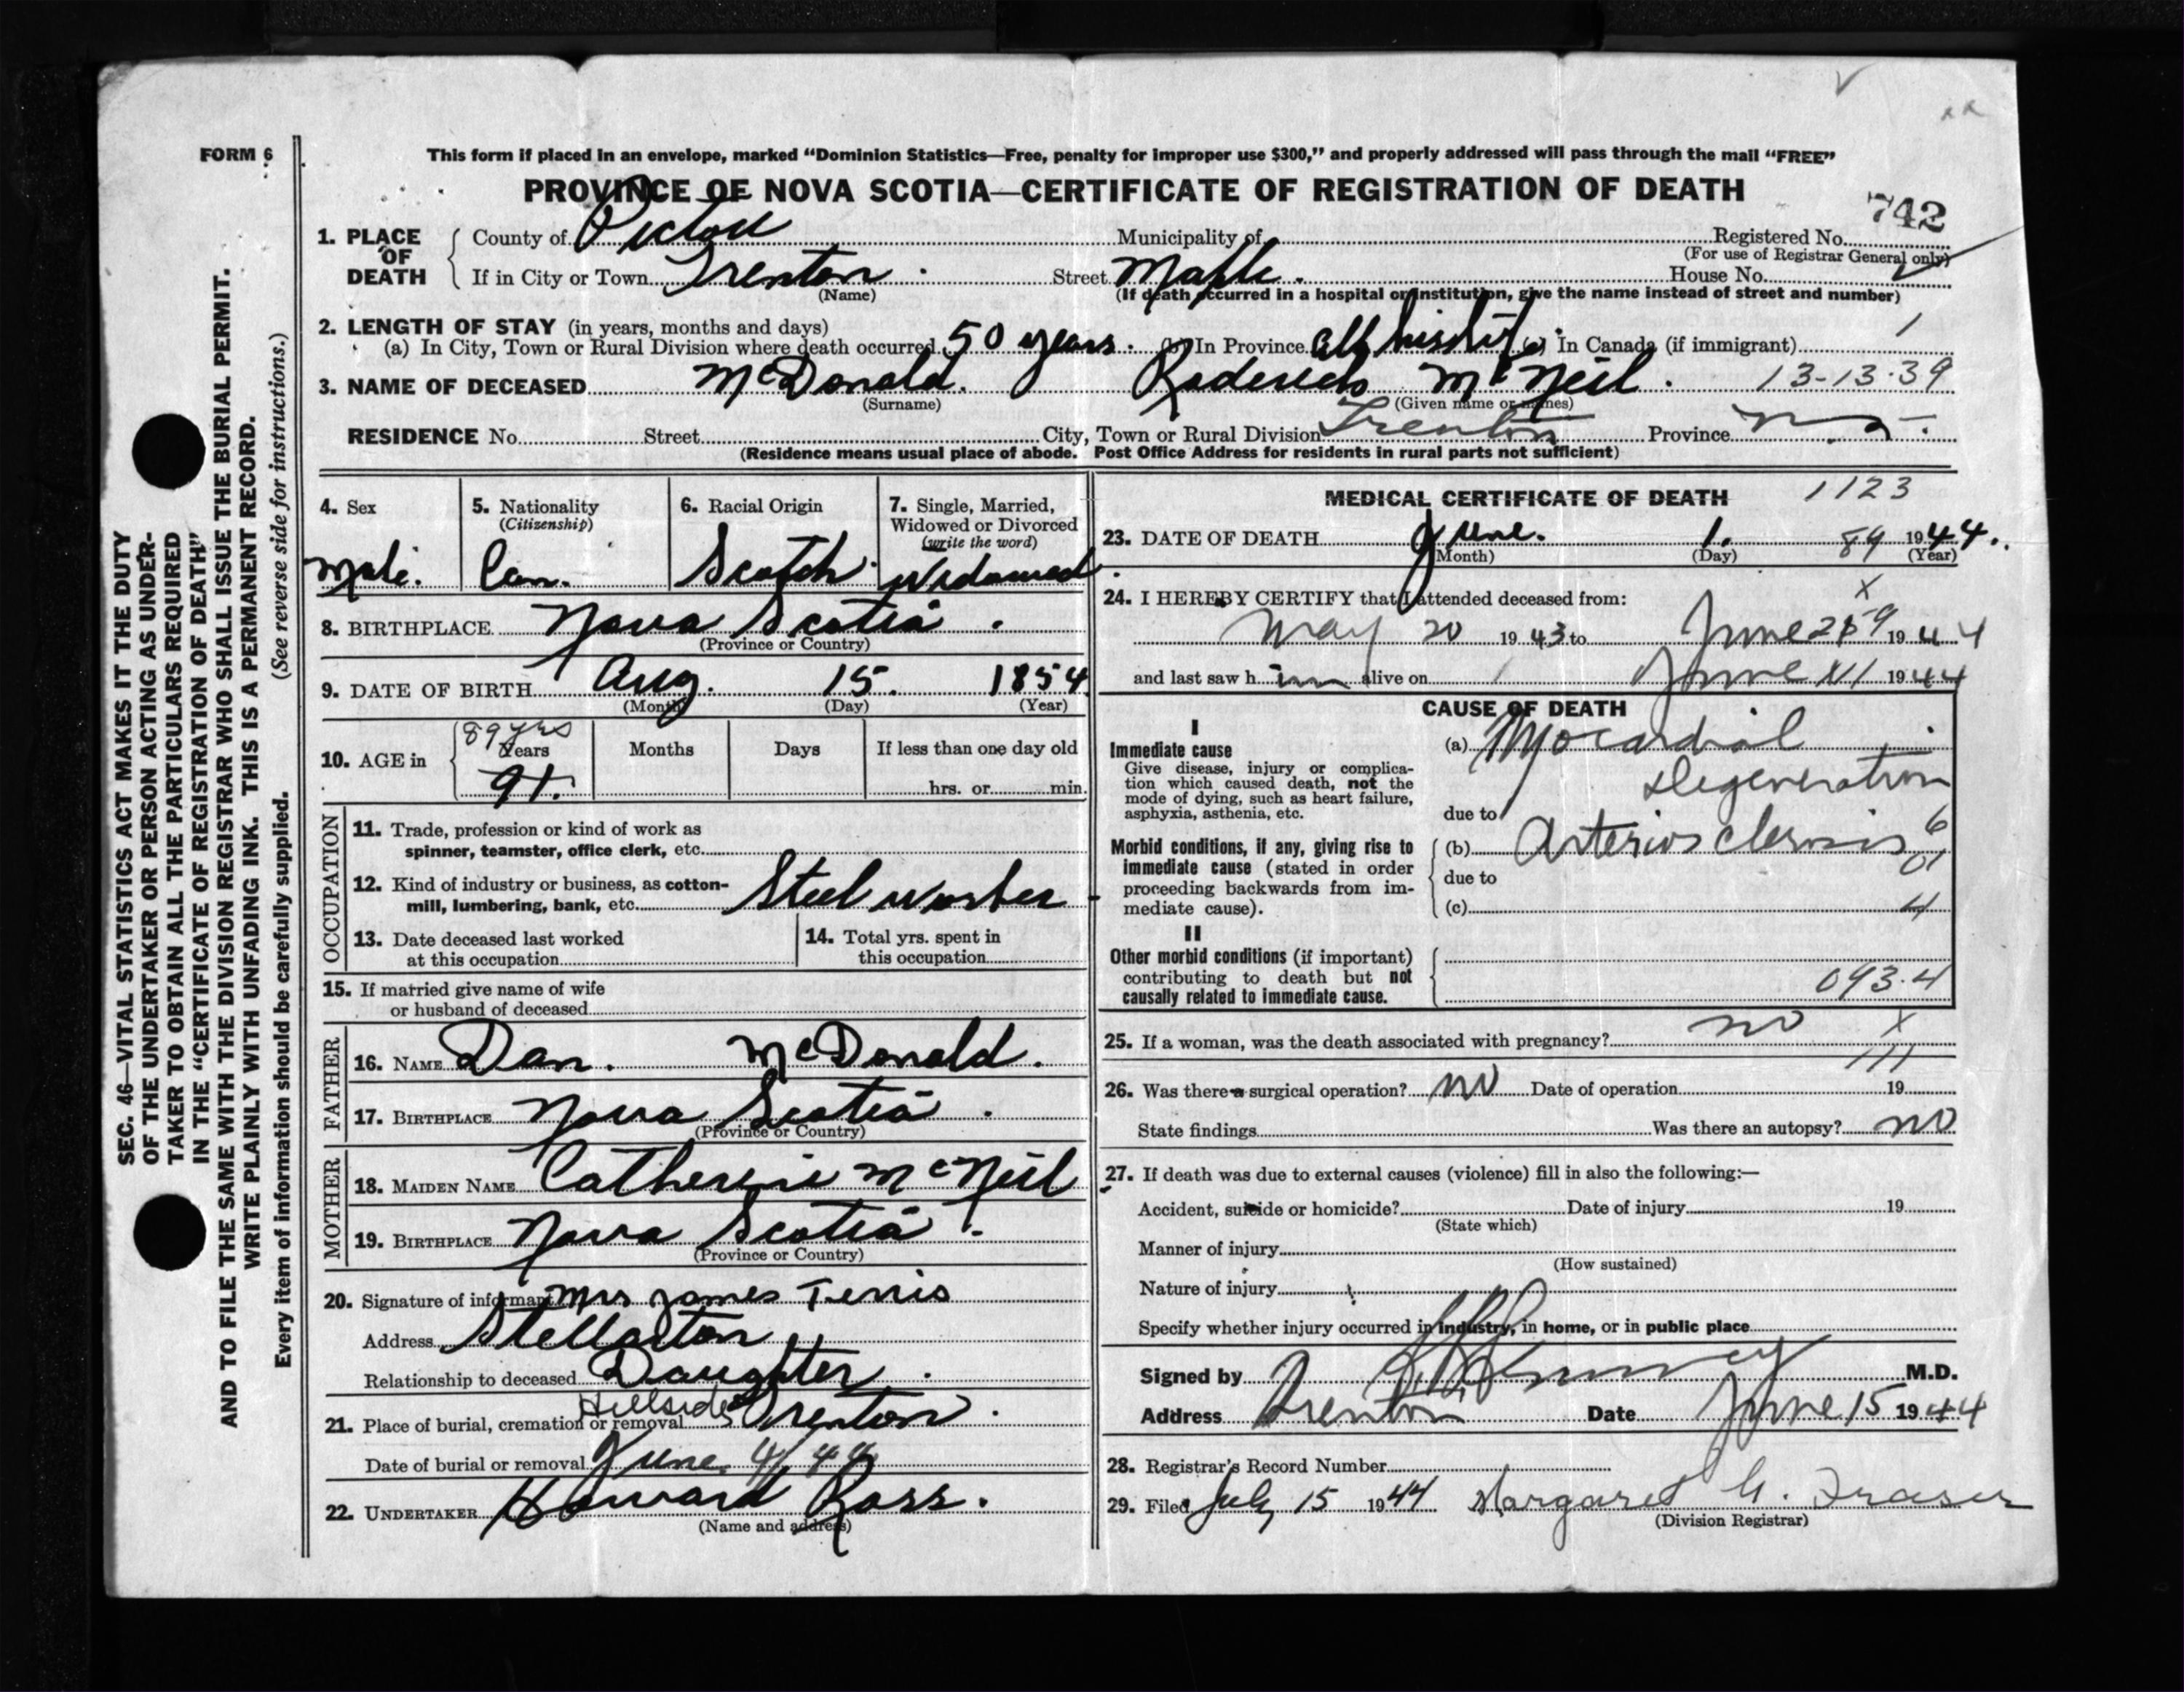 FORM 6
This form if placed in an envelope, marked "Dominion Statistics—Free, penalty for improper use $300," and properly addressed will pass through the mail "FREE"
PROVINCE OF NOVA SCOTIA—CERTIFICATE OF REGISTRATION OF DEATH
742
1. PLACE OF DEATH County of Pictou Municipality of Registered No.
(For use of Registrar General only)
If in City or Town Trenton Street Maple. House No.
(Name)
(If death occurred in a hospital or institution, give the name instead of street and number)
2. LENGTH OF STAY (in years, months and days)
(a) In City, Town or Rural Division where death occurred 50 years. (b) In Province all his life. (c) In Canada (if immigrant) 1
3. NAME OF DECEASED McDonald. Roderick McNeil. 13-13-39
(Surname) (Given name or names)
RESIDENCE No. Street City, Town or Rural Division Trenton Province N.S.
(Residence means usual place of abode. Post Office Address for residents in rural parts not sufficient)
4. Sex
Male.
5. Nationality
(Citizenship)
Can.
6. Racial Origin
Scotch
7. Single, Married,
Widowed or Divorced
(write the word)
Widowed
8. BIRTHPLACE Nova Scotia.
(Province or Country)
9. DATE OF BIRTH Aug. 15. 1854
(Month) (Day) (Year)
10. AGE in 89 yrs Years 91. Months Days If less than one day old
hrs. or min.
OCCUPATION
11. Trade, profession or kind of work as
spinner, teamster, office clerk, etc.
12. Kind of industry or business, as cotton-
mill, lumbering, bank, etc. Steel worker
13. Date deceased last worked
at this occupation
14. Total yrs. spent in
this occupation
15. If married give name of wife
or husband of deceased
FATHER
16. NAME Dan. McDonald.
17. BIRTHPLACE Nova Scotia.
(Province or Country)
MOTHER
18. MAIDEN NAME Catherine McNeil
19. BIRTHPLACE Nova Scotia.
(Province or Country)
20. Signature of informant Mrs James Ferris
Address Stellarton
Relationship to deceased Daughter.
21. Place of burial, cremation or removal Hillside Trenton.
Date of burial or removal June 4/44
22. UNDERTAKER Howard Ross.
(Name and address)
MEDICAL CERTIFICATE OF DEATH 1123
23. DATE OF DEATH June. 1. 89 1944.
(Month) (Day) (Year)
24. I HEREBY CERTIFY that I attended deceased from: X
May 20 1943 to June 1944
and last saw him alive on June 1944
CAUSE OF DEATH
I
Immediate cause
Give disease, injury or complica-
tion which caused death, not the
mode of dying, such as heart failure,
asphyxia, asthenia, etc.
(a) Myocardial
Degeneration
due to
Morbid conditions, if any, giving rise to
immediate cause (stated in order
proceeding backwards from im-
mediate cause).
(b) Arteriosclerosis 6
01
due to
(c) 4
II
Other morbid conditions (if important)
contributing to death but not
causally related to immediate cause.
093.4
25. If a woman, was the death associated with pregnancy? no X
111
26. Was there a surgical operation? no Date of operation 19
State findings Was there an autopsy? no
27. If death was due to external causes (violence) fill in also the following:—
Accident, suicide or homicide? Date of injury 19
(State which)
Manner of injury
(How sustained)
Nature of injury
Specify whether injury occurred in industry, in home, or in public place
Signed by M.D.
Address Trenton Date June 15 1944
28. Registrar's Record Number
29. Filed July 15 1944 Margaret G. Fraser
(Division Registrar)
SEC. 46—VITAL STATISTICS ACT MAKES IT THE DUTY
OF THE UNDERTAKER OR PERSON ACTING AS UNDER-
TAKER TO OBTAIN ALL THE PARTICULARS REQUIRED
IN THE "CERTIFICATE OF REGISTRATION OF DEATH"
AND TO FILE THE SAME WITH THE DIVISION REGISTRAR WHO SHALL ISSUE THE BURIAL PERMIT.
WRITE PLAINLY WITH UNFADING INK. THIS IS A PERMANENT RECORD.
Every item of information should be carefully supplied. (See reverse side for instructions.)